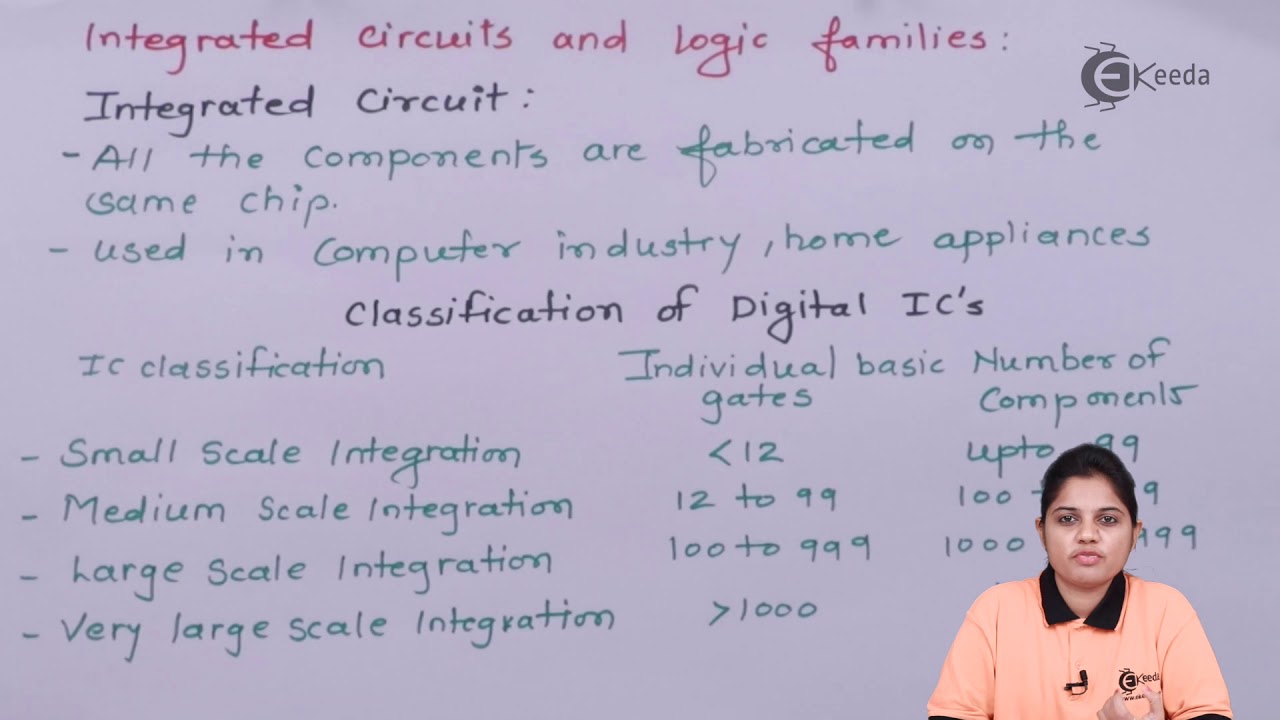 Integrated circuits and logic families:
EKeeda
Integrated Circuit:
- All the components are fabricated on the
same chip.
- used in computer industry, home appliances
Classification of Digital IC's
IC classification Individual basic Number of
gates Components
- Small Scale Integration <12 upto 99
- Medium Scale Integration 12 to 99 100
- Large Scale Integration 100 to 999 1000
- Very large scale Integration >1000
EKeeda